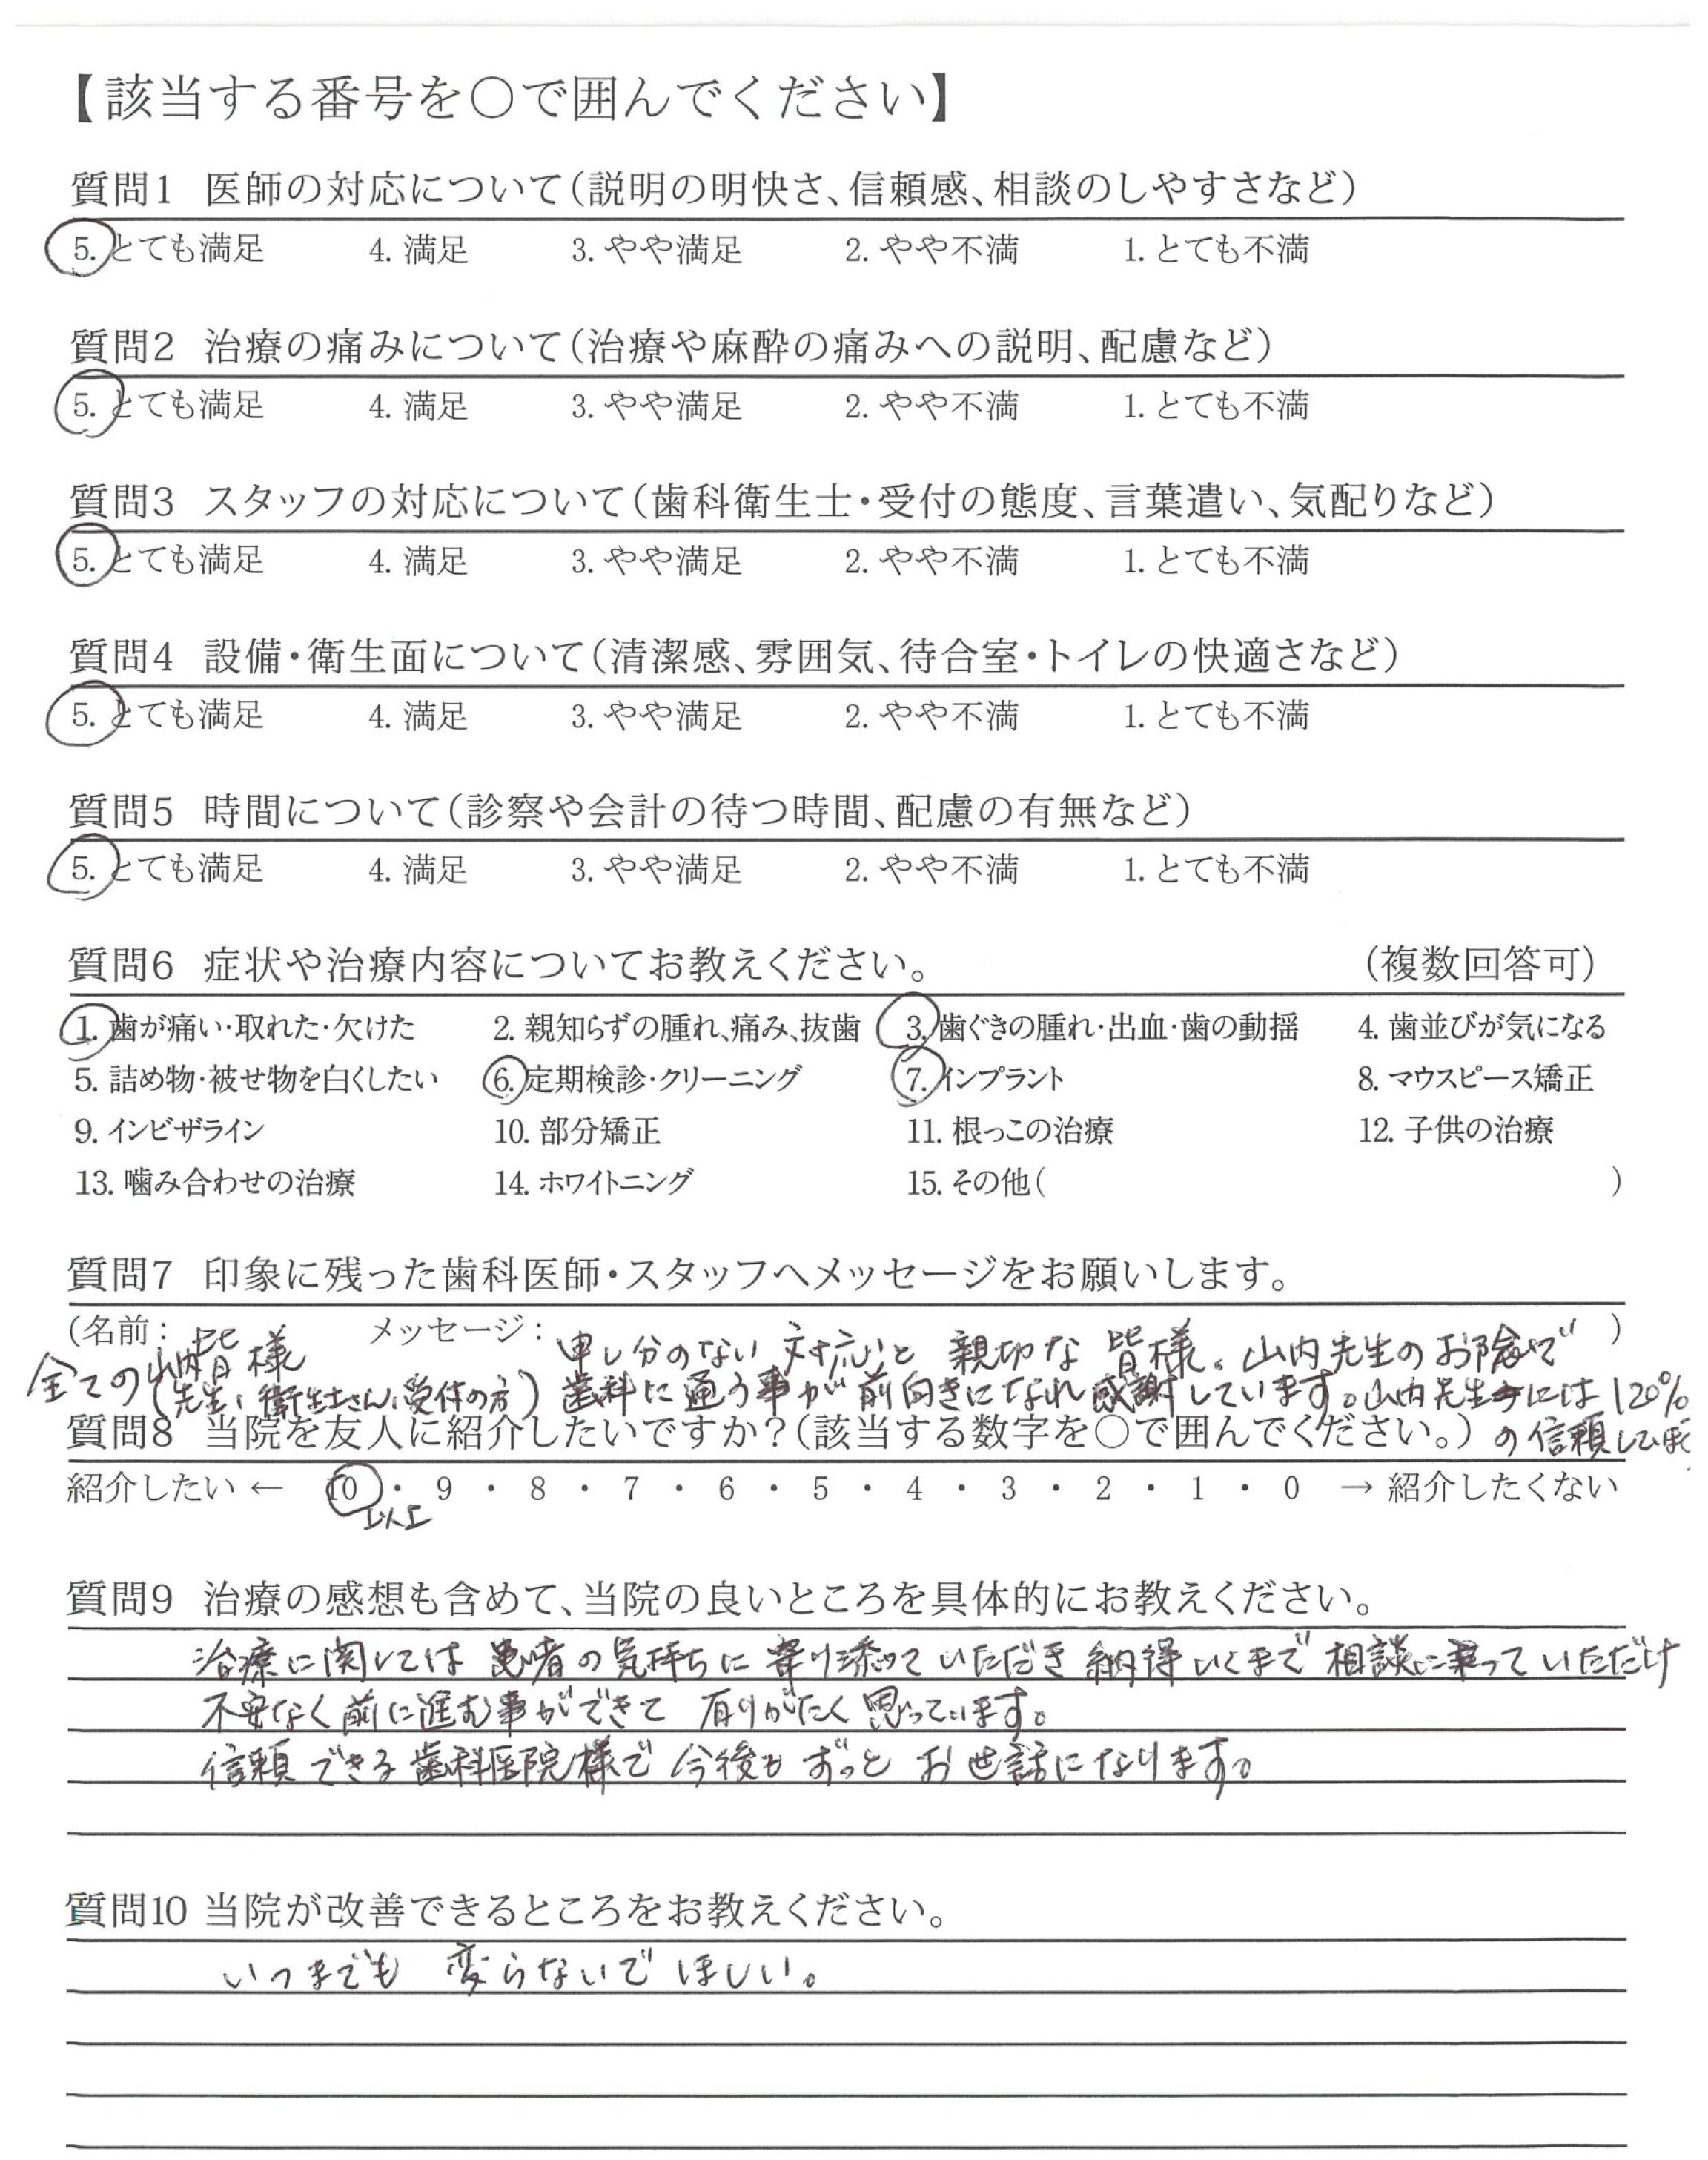 【該当する番号を〇で囲んでください】
質問1 医師の対応について(説明の明快さ、信頼感、相談のしやすさなど)
5. とても満足 4. 満足 3. やや満足 2. やや不満 1. とても不満
質問2 治療の痛みについて(治療や麻酔の痛みへの説明、配慮など)
5. とても満足 4. 満足 3. やや満足 2. やや不満 1. とても不満
質問3 スタッフの対応について(歯科衛生士・受付の態度、言葉遣い、気配りなど)
5. とても満足 4. 満足 3. やや満足 2. やや不満 1. とても不満
質問4 設備・衛生面について(清潔感、雰囲気、待合室・トイレの快適さなど)
5. とても満足 4. 満足 3. やや満足 2. やや不満 1. とても不満
質問5 時間について(診察や会計の待つ時間、配慮の有無など)
5. とても満足 4. 満足 3. やや満足 2. やや不満 1. とても不満
質問6 症状や治療内容についてお教えください。 (複数回答可)
1. 歯が痛い・取れた・欠けた 2. 親知らずの腫れ、痛み、抜歯 3. 歯ぐきの腫れ・出血・歯の動揺 4. 歯並びが気になる
5. 詰め物・被せ物を白くしたい 6. 定期検診・クリーニング 7. インプラント 8. マウスピース矯正
9. インビザライン 10. 部分矯正 11. 根っこの治療 12. 子供の治療
13. 噛み合わせの治療 14. ホワイトニング 15. その他( )
質問7 印象に残った歯科医師・スタッフへメッセージをお願いします。
(名前: メッセージ: )
全ての 皆様 申し分のない対応と 親切な 皆様。山内先生のお陰で
(先生、衛生士さん、受付の方) 歯科に通う事が前向きになれ感謝しています。山内先生には120%
質問8 当院を友人に紹介したいですか?(該当する数字を〇で囲んでください。) の信頼して
紹介したい ← 10 ・ 9 ・ 8 ・ 7 ・ 6 ・ 5 ・ 4 ・ 3 ・ 2 ・ 1 ・ 0 → 紹介したくない
以上
質問9 治療の感想も含めて、当院の良いところを具体的にお教えください。
治療に関しては 患者の気持ちに寄り添っていただき納得いくまで相談に乗っていただけ
不安なく前に進む事ができて 有りがたく思っています。
信頼できる歯科医院様で今後もずっとお世話になります。
質問10 当院が改善できるところをお教えください。
いつまでも 変らないでほしい。